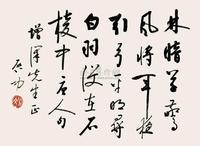 林暗草驚
風將軍夜
引弓平明尋
白羽没在石
棱中唐人句
增先生正
启功